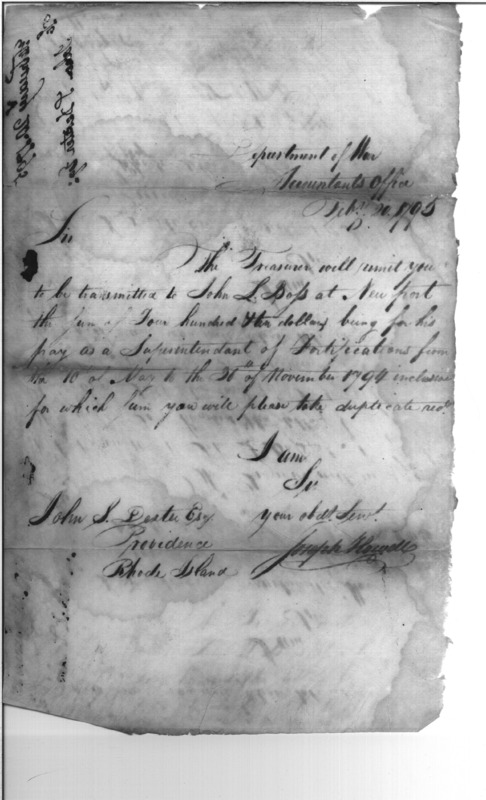 Department of War
Accountants Office
Feby. 20. 1795
Sir
The Treasurer will remit you
to be transmitted to John L. Boss at New port
the sum of Four hundred & ten dollars being for his
pay as a Superintendant of Fortifications from
the 10 of May to the 26th of November 1794 inclusive
for which sum you will please take duplicate
I am
Sir
your obdt. Servt.
Joseph Howell
John S. Dexter Esqr
Providence
Rhode Island